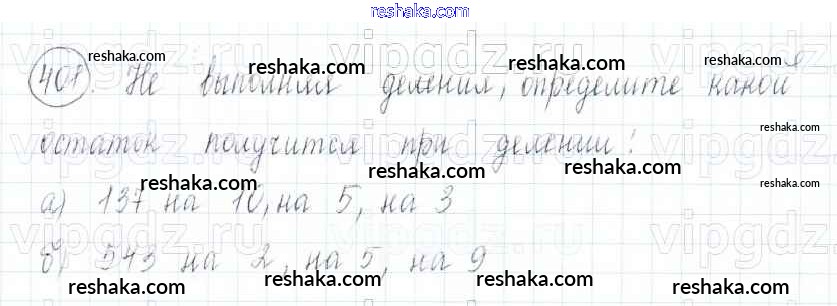 www.reshaka.com
401. Не выполняя деления, определите какой
остаток получится при делении:
а) 137 на 10, на 5, на 3
б) 543 на 2, на 5, на 9
reshaka.com
reshaka.com
reshaka.com
reshaka.com
reshaka.com
reshaka.com
reshaka.com
reshaka.com
reshaka.com
reshaka.com
reshaka.com
vipgdz.ru
vipgdz.ru
vipgdz.ru